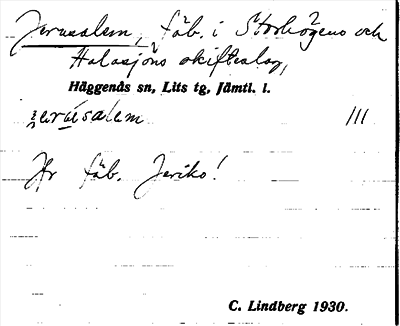 Jerusalem, fäb. i Storhögens och
Halasjöns skifteslag,
Häggenås sn, Lits tg, Jämtl. l.
jerúsalem
III
Jfr fäb. Jeriko!
C. Lindberg 1930.